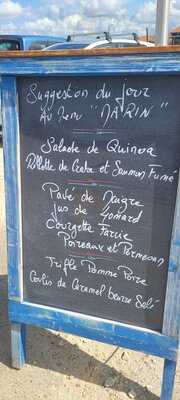 Suggestion du jour
Au Menu "MARIN"
Salade de Quinoa
Rillette de Crabe et Saumon Fumé
Pavé de Maigre
Jus de Homard
Courgette Farcie
Poireaux et Parmesan
Trifle Pomme Poire
Coulis de Caramel beurre Salé